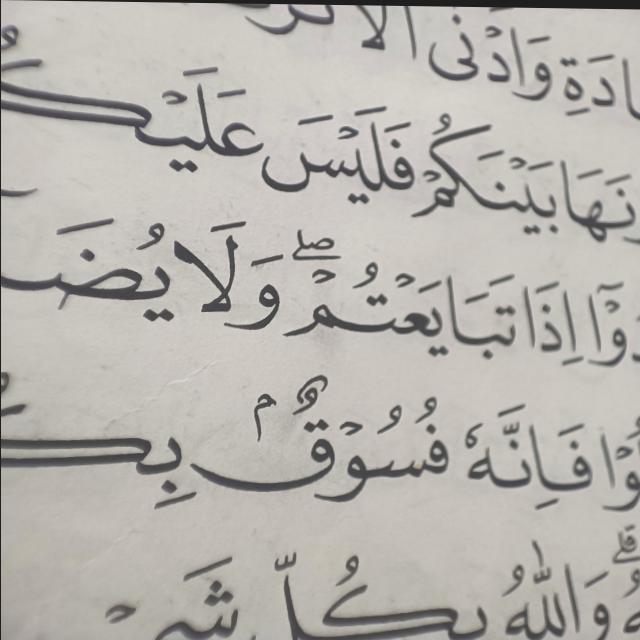 ادَةِ وَاَدْنٰى اَلَّا تَر
نَهَا بَيْنَكُمْ فَلَيْسَ عَلَيْك
دُوْٓا اِذَا تَبَايَعْتُمْ ۖ وَلَا يُضَ
وْا فَاِنَّهٗ فُسُوْقٌۢ بِك
وَاللّٰهُ بِكُلِّ شَيْ